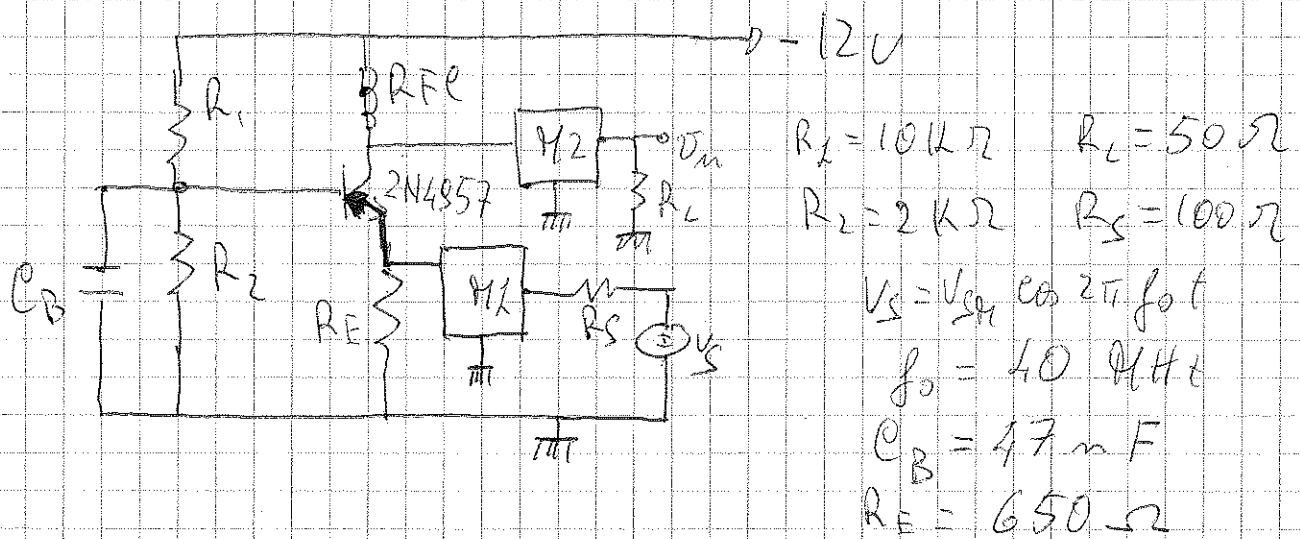 -12V
R1
RFC
M2
vu
RL
2N4957
CB
R2
RE
M1
RS
vS
R1 = 10KΩ RL = 50Ω
R2 = 2KΩ RS = 100Ω
VS = VSM cos 2π f0 t
f0 = 40 MHz
CB = 47 nF
RE = 650 Ω